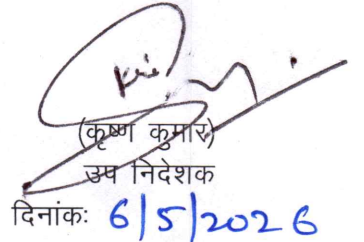 (कृष्ण कुमार)
उप निदेशक
दिनांकः 6/5/2026